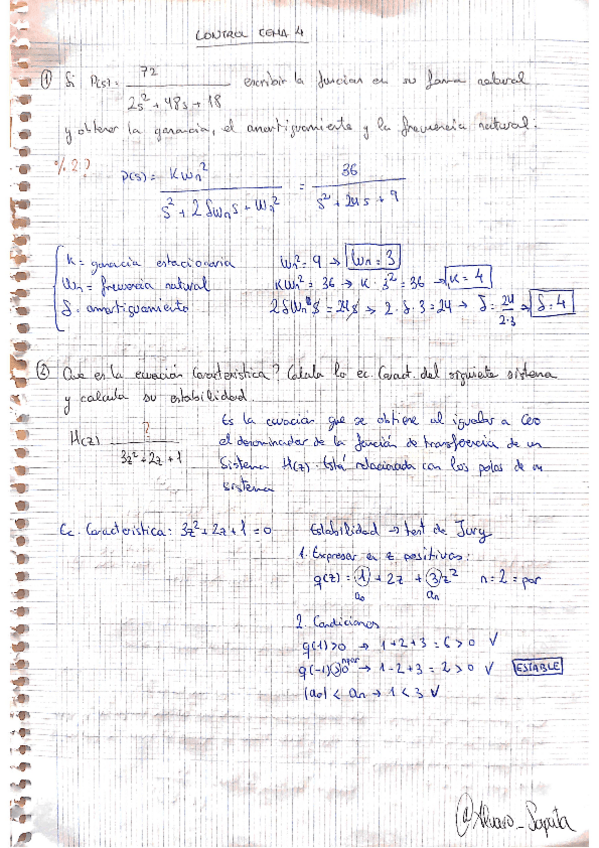 CONTROL TEMA 4
① Si P(s) = 72 / 2s² + 48s + 18 escribir la funcion en su forma natural
y obtener la ganancia, el amortiguamiento y la frecuencia natural:
% 2?
P(s) = Kωn² / s² + 2δωns + ωn² = 36 / s² + 24s + 9
K = ganacia estacionaria ωn² = 9 → ωn = 3
ωn = frecuencia natural Kωn² = 36 → K · 3² = 36 → K = 4
δ = amortiguamiento 2δωns = 24s → 2 · δ · 3 = 24 → δ = 24 / 2·3 → δ = 4
② Que es la ecuación característica? Calcula la ec. Caract. del siguiente sistema
y calcula su estabilidad.
H(z) ? / 3z² + 2z + 1
Es la ecuación que se obtiene al igualar a cero
el denominador de la función de transferencia de un
Sistema H(z). Está relacionada con los polos de un
sistema
Ec. Característica: 3z² + 2z + 1 = 0
Estabilidad → test de Jury
1. Expresar en z positivas:
q(z) = 1 + 2z + 3z² n = 2 = par
a₀ aₙ
2. Condiciones
q(1) > 0 → 1 + 2 + 3 = 6 > 0 ✓
q(-1) > 0 → 1 - 2 + 3 = 2 > 0 ✓ ESTABLE
|a₀| < aₙ → 1 < 3 ✓
@Alvaro_Zapata